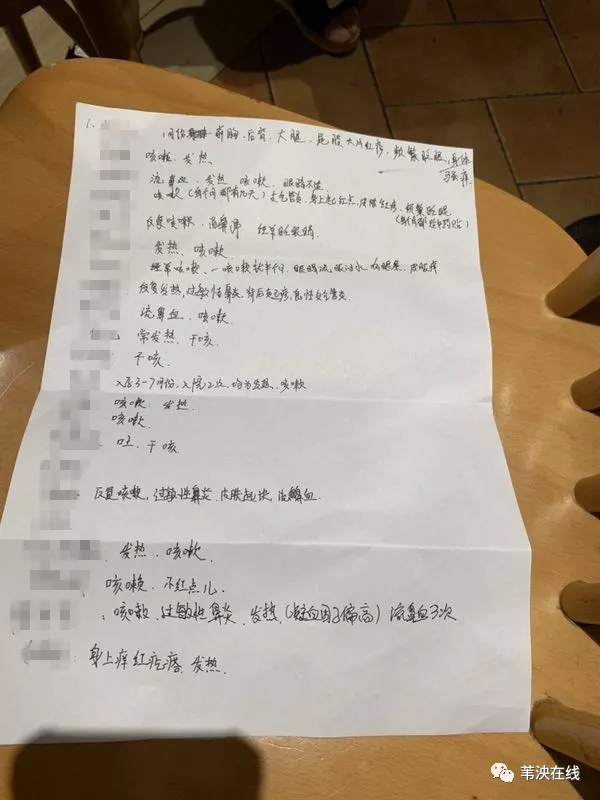 1.
1月份 前胸、后背、大腿、屁股大片红疹、频繁眨眼、身体
咳嗽、发热
流鼻血、发热、咳嗽、眼睛不适
咳嗽(每个月都有几天)支气管炎、身上起红点、皮肤红疹、频繁眨眼
反复咳嗽、流鼻涕 经常眨眼睛
发热、咳嗽
经常咳嗽、一咳嗽就半个月、眼睛流 有眼屎、皮肤痒
反复发热,过敏性鼻炎、背后起疹,急性支气管炎
流鼻血、咳嗽
常发热、干咳
干咳
入店3-7月份,入院2次,均为发热、咳嗽
咳嗽、发热
咳嗽
吐、干咳
反复咳嗽,过敏性鼻炎、皮肤起块、流鼻血
发热、咳嗽
咳嗽、红点儿
咳嗽、过敏性鼻炎、发热、(凝血因子偏高)流鼻血3次
身上痒红疙瘩、发热
苇泱在线